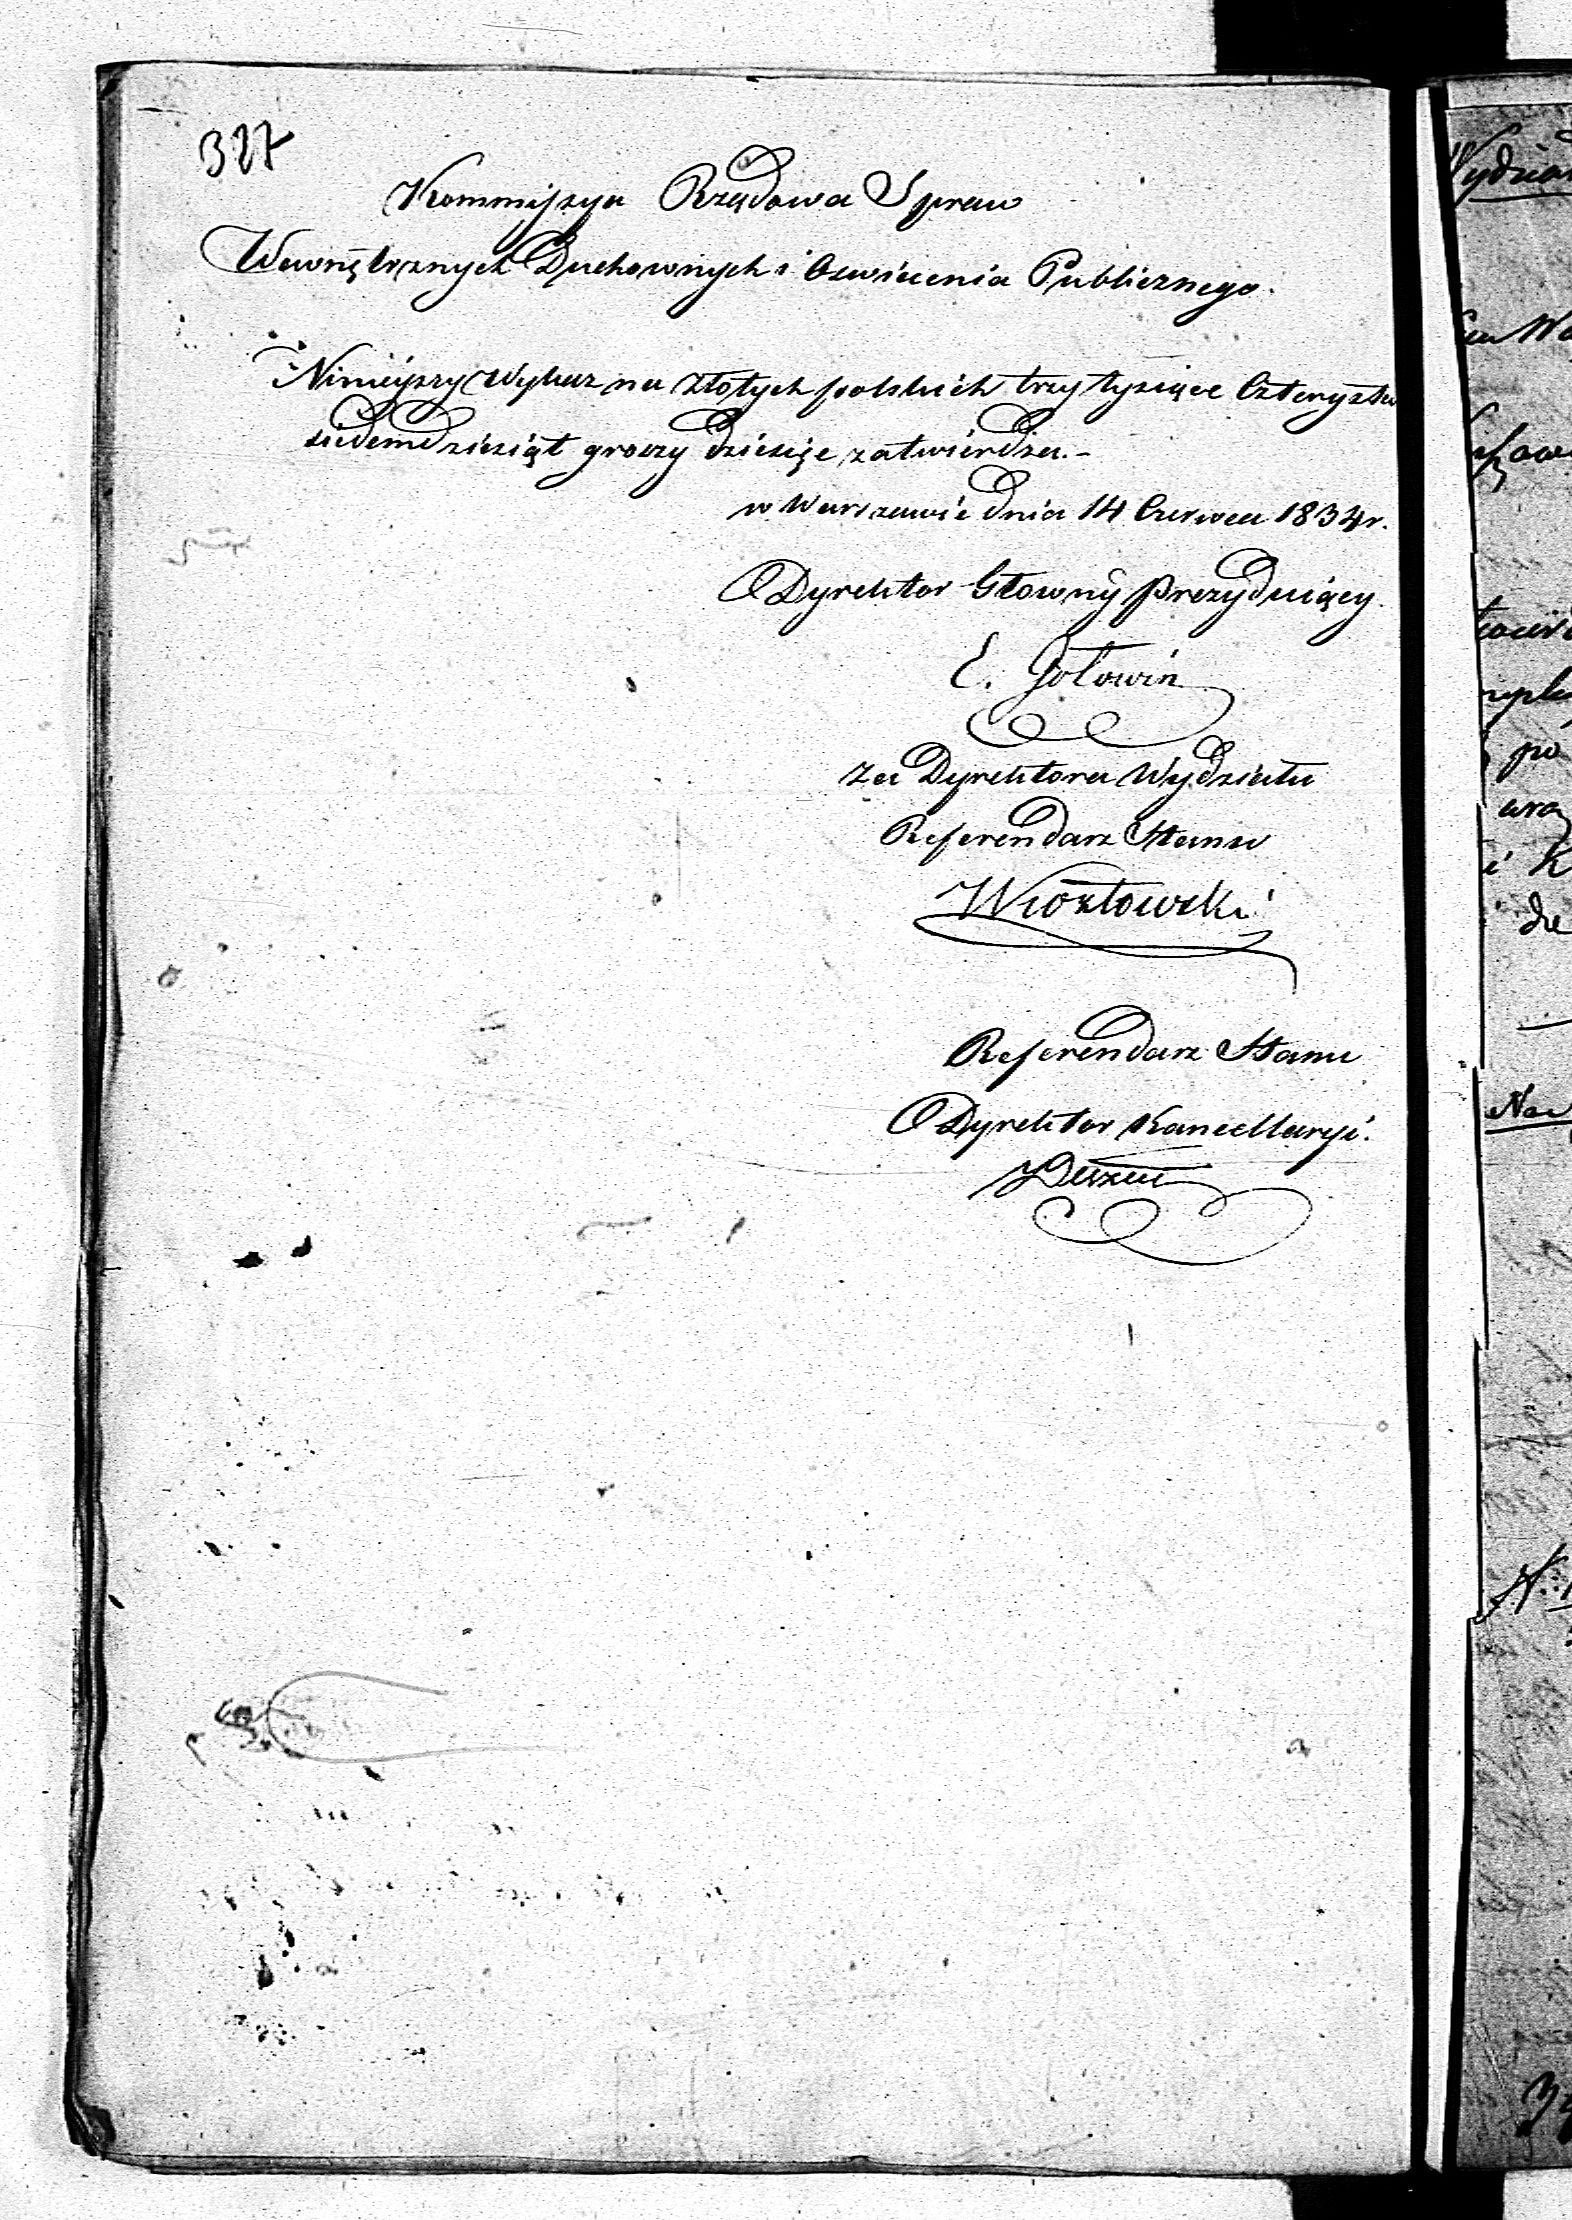 327
Kommissya Rządowa Spraw
Wewnętrznych Duchownych i Oswiecenia Publicznego.
Niniejszy Wykaz na złotych polskich trzy tysiące Czterysta
siedemdziesiąt groszy dziesięc zatwierdza.-
w Warszawie dnia 14 Czerwca 1834 r.
Dyrektor Głowny Prezyduiący.
E. Gołowin
Za Dyrektora Wydziału
Referendarz Stanu
Referendarz Stanu
Dyrektor Kancellaryi.
po
i K
N